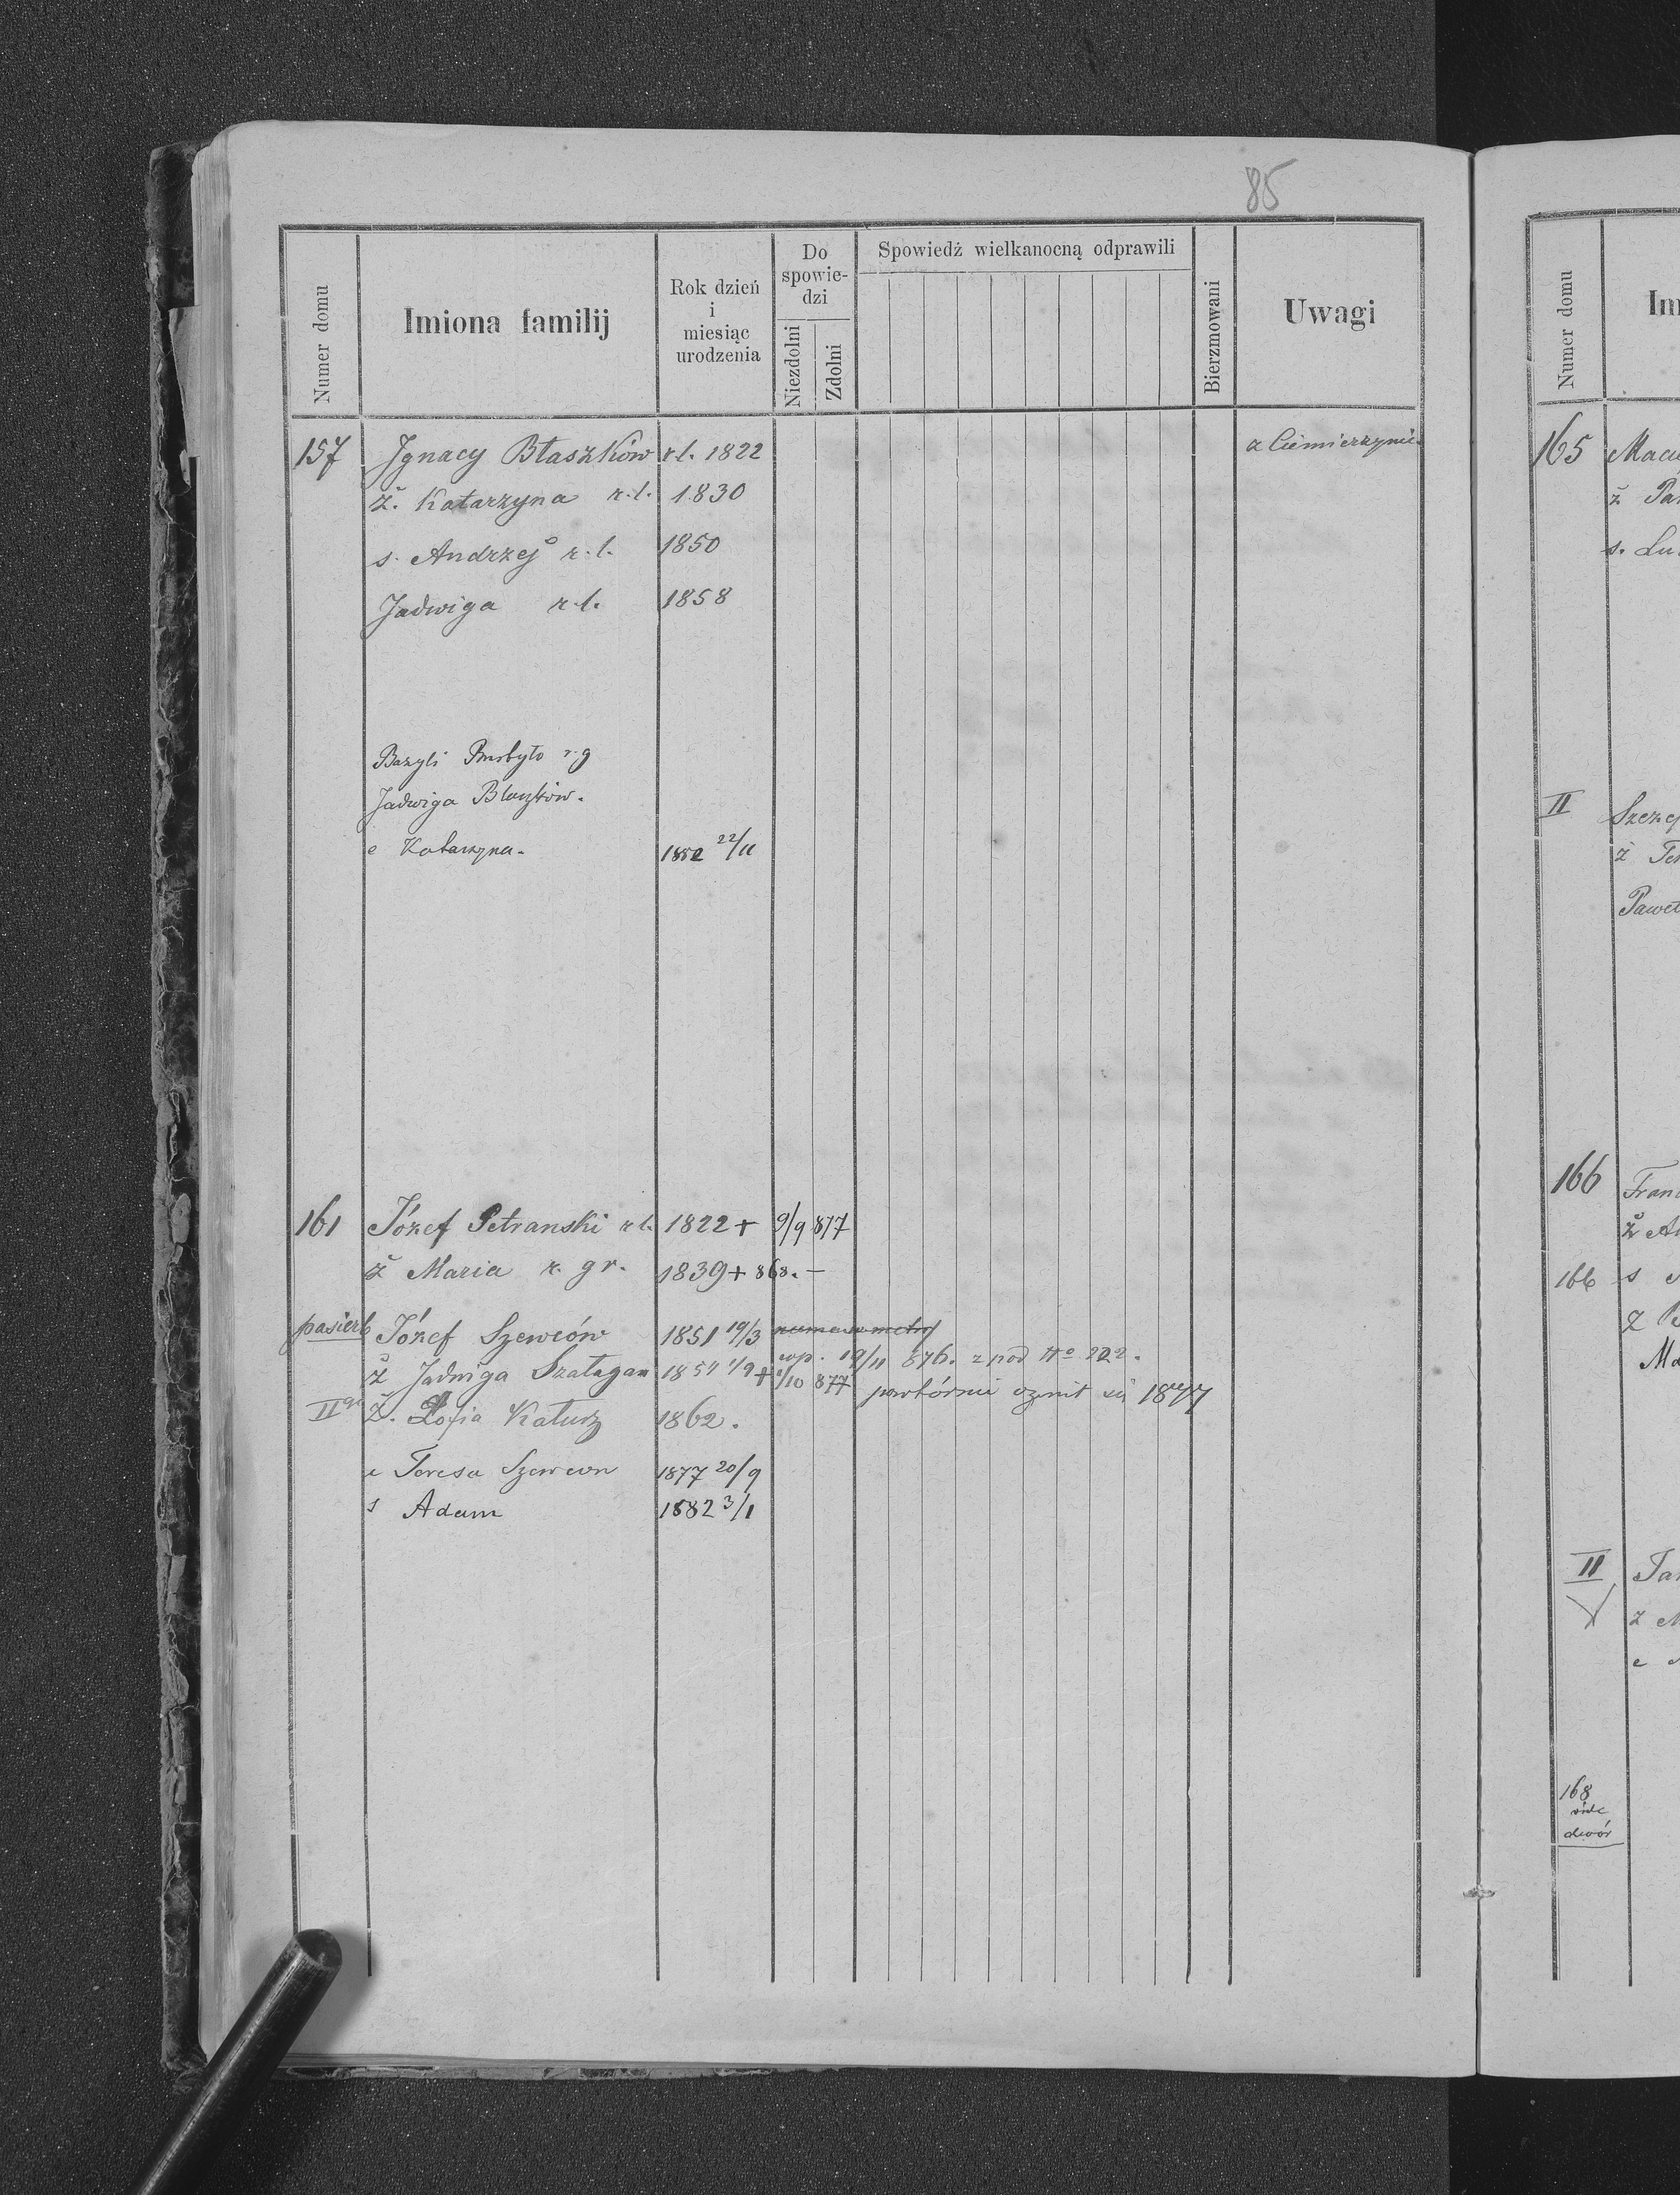 85
Numer domu
Imiona familij
Rok dzień
i
miesiąc
urodzenia
Do
spowie-
dzi
Niezdolni
Zdolni
Spowiedź wielkanocną odprawili
Bierzmowani
Uwagi
157 Jgnacy Błaszków r.l. 1822 z Ciemierzyniec
ż. Katarzyna r.l. 1830
s. Andrzej r.l. 1850
Jadwiga r.l. 1858
Bazyli r.g
Jadwiga Błaszków.
c Katarzyna. 22/11
161 Józef Petranski r.l. 1822 + 9/9 877
ż Maria r. gr. 1839 + 868. -
pasierb Józef Szewców 1851 19/3
wp. 19/11 876. z pod No 222.
ż Jadwiga Szałagan 1854 1/9 + 1/10 877 powtórnie ożenił się 1877
II ż. Zofia Kałusz 1862.
c Teresa Szewców 1877 20/9
s Adam 1882 3/1
Numer domu
Im
165 Maci
ż Par
s. Lu
II Szczep
ż Te
Paweł
166 Fran
ż An
166 s
ż
Ma
II Ja
ż M
c
168
vide
dwór